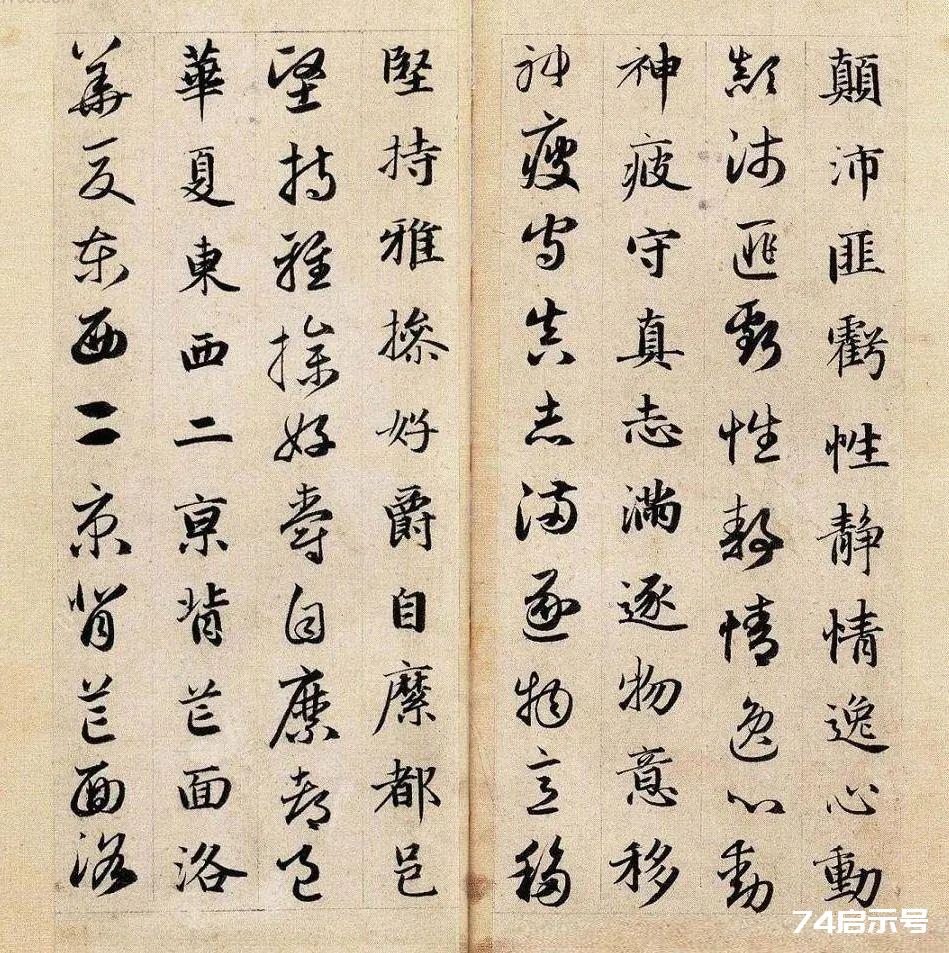 顛沛匪虧性静情逸心動
顛沛匪虧性静情逸心動
神疲守真志滿逐物意移
神疲守真志滿逐物意移
堅持雅操好爵自縻都邑
堅持雅操好爵自縻都邑
華夏東西二京背芒面洛
華夏東西二京背芒面洛
74启示号